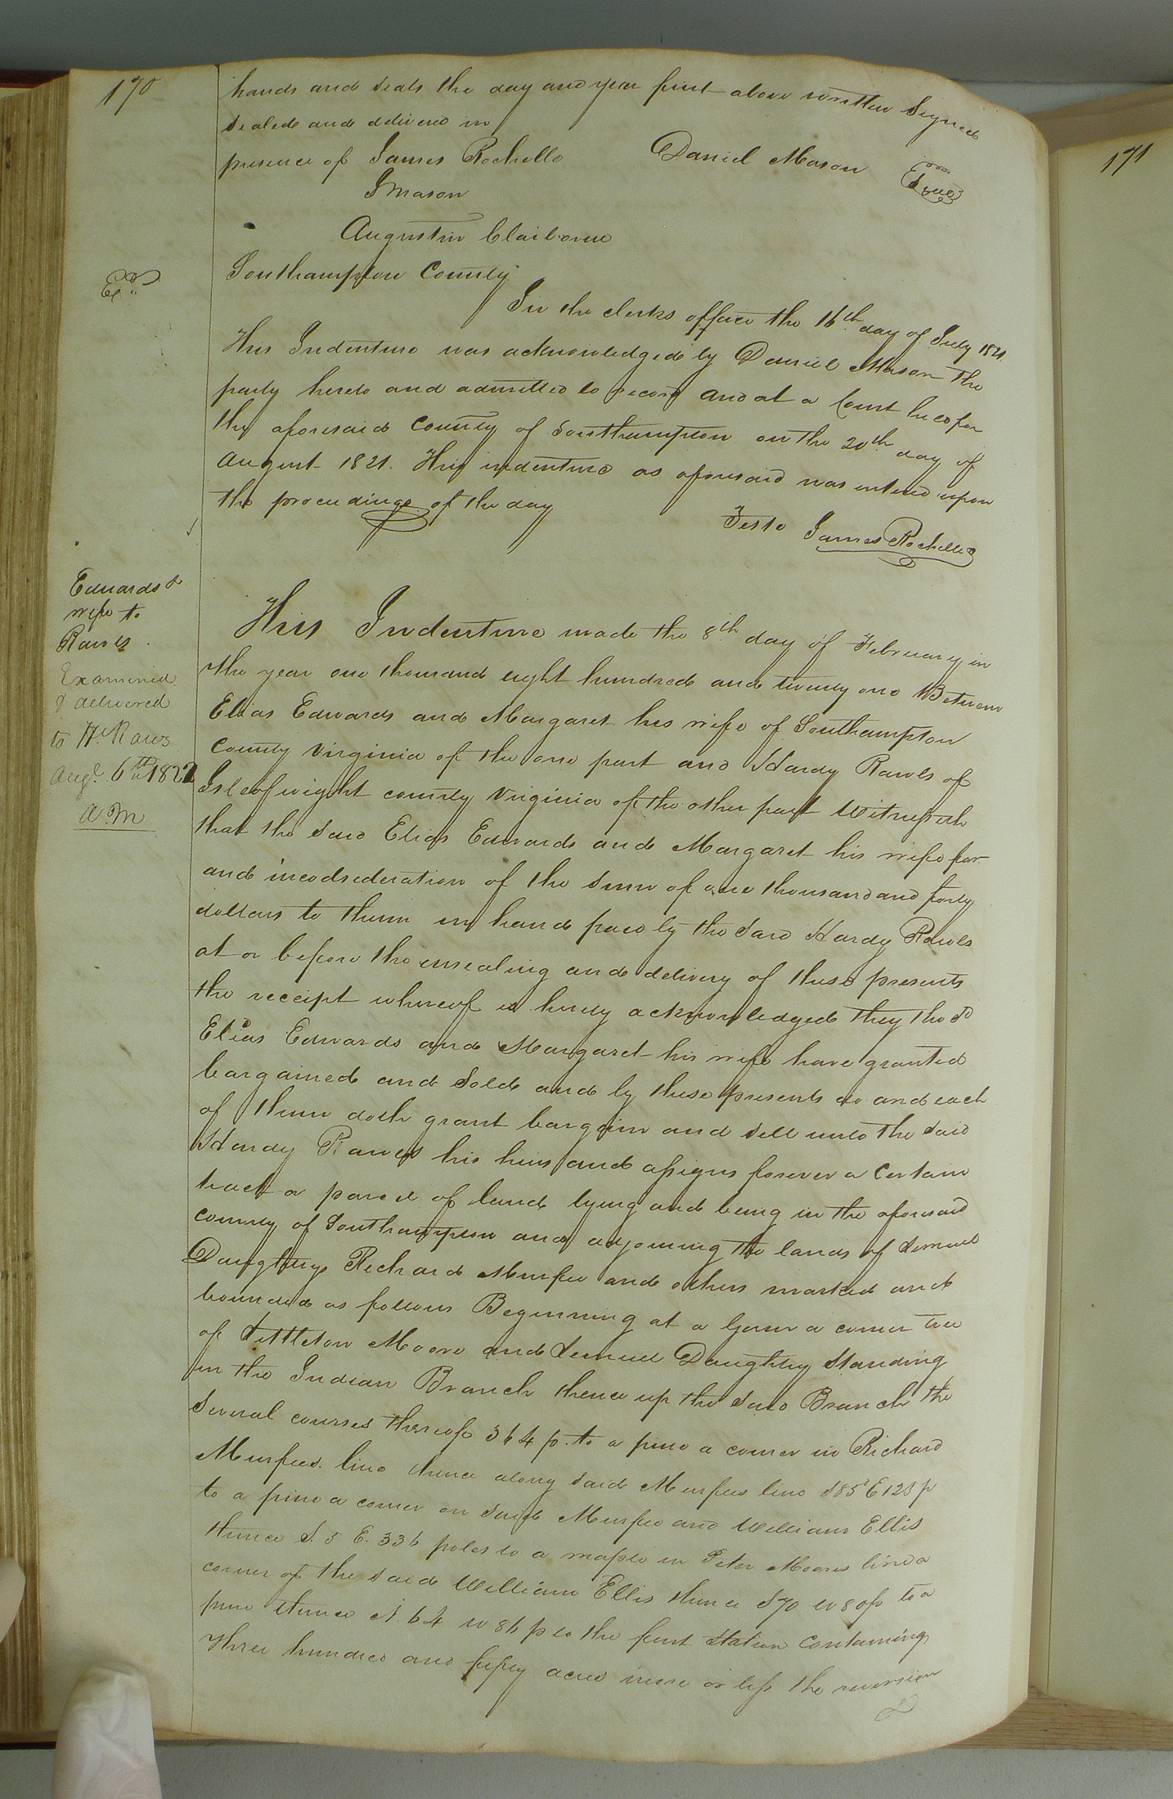 170
hands and seals the day and year first above written Signed
sealed and delivered in
presence of James Rochelle Daniel Mason Seal
J Mason
Augustin Claiborne
Southampton County
Exd
In the clerks office the 16th day of July 1821
This Indenture was acknowledged by Daniel Mason the
party hereto and admitted to record and at a Court held for
the aforesaid county of Southampton on the 20th day of
August 1821. This indenture as aforesaid was entered upon
the proceedings of the day
Teste James Rochelle
Edwards &
wife to
Rawls
Examined
& delivered
to H. Rawls
Augt. 6th 1822
A.M
This Indenture made the 8th day of February in
the year one thousand eight hundred and twenty one Between
Elias Edwards and Margaret his wife of Southampton
County Virginia of the one part and Hardy Rawls of
Isle of wight county Virginia of the other part Witnesseth
that the said Elias Edwards and Margaret his wife for
and incodsederation of the sum of one thousand and forty
dollars to them in hand paid by the said Hardy Rawls
at or before the ensealing and delivery of these presents
the receipt whereof is hereby acknowledged they the sd
Elias Edwards and Margaret his wife have granted
bargained and sold and by these presents do and each
of them doth grant bargain and sell unto the said
Hardy Rawls his heirs and assigns forever a certain
tract or parcel of land lying and being in the aforesaid
county of Southampton and adjoining the lands of Lemuel
Daughtry Richard Murfee and others marked and
bounded as follows Beginning at a Gum a corner tree
of Littleton Moore and Lemuel Daughtry Standing
in the Indian Branch thence up the said Branch the
several courses thereof 364 p. to a pine a corner in Richard
Murfees line thence along said Murfees line S85 E 128 p
to a pine a corner on said Murfee and William Ellis
thence S. 5 E. 336 poles to a maple in Peter Moores line a
corner of the said William Ellis thence S70 W 80 p to a
pine thence N 64 W 86 p to the first Station Containing
three hundred and fifty acres more or less the reversion
171